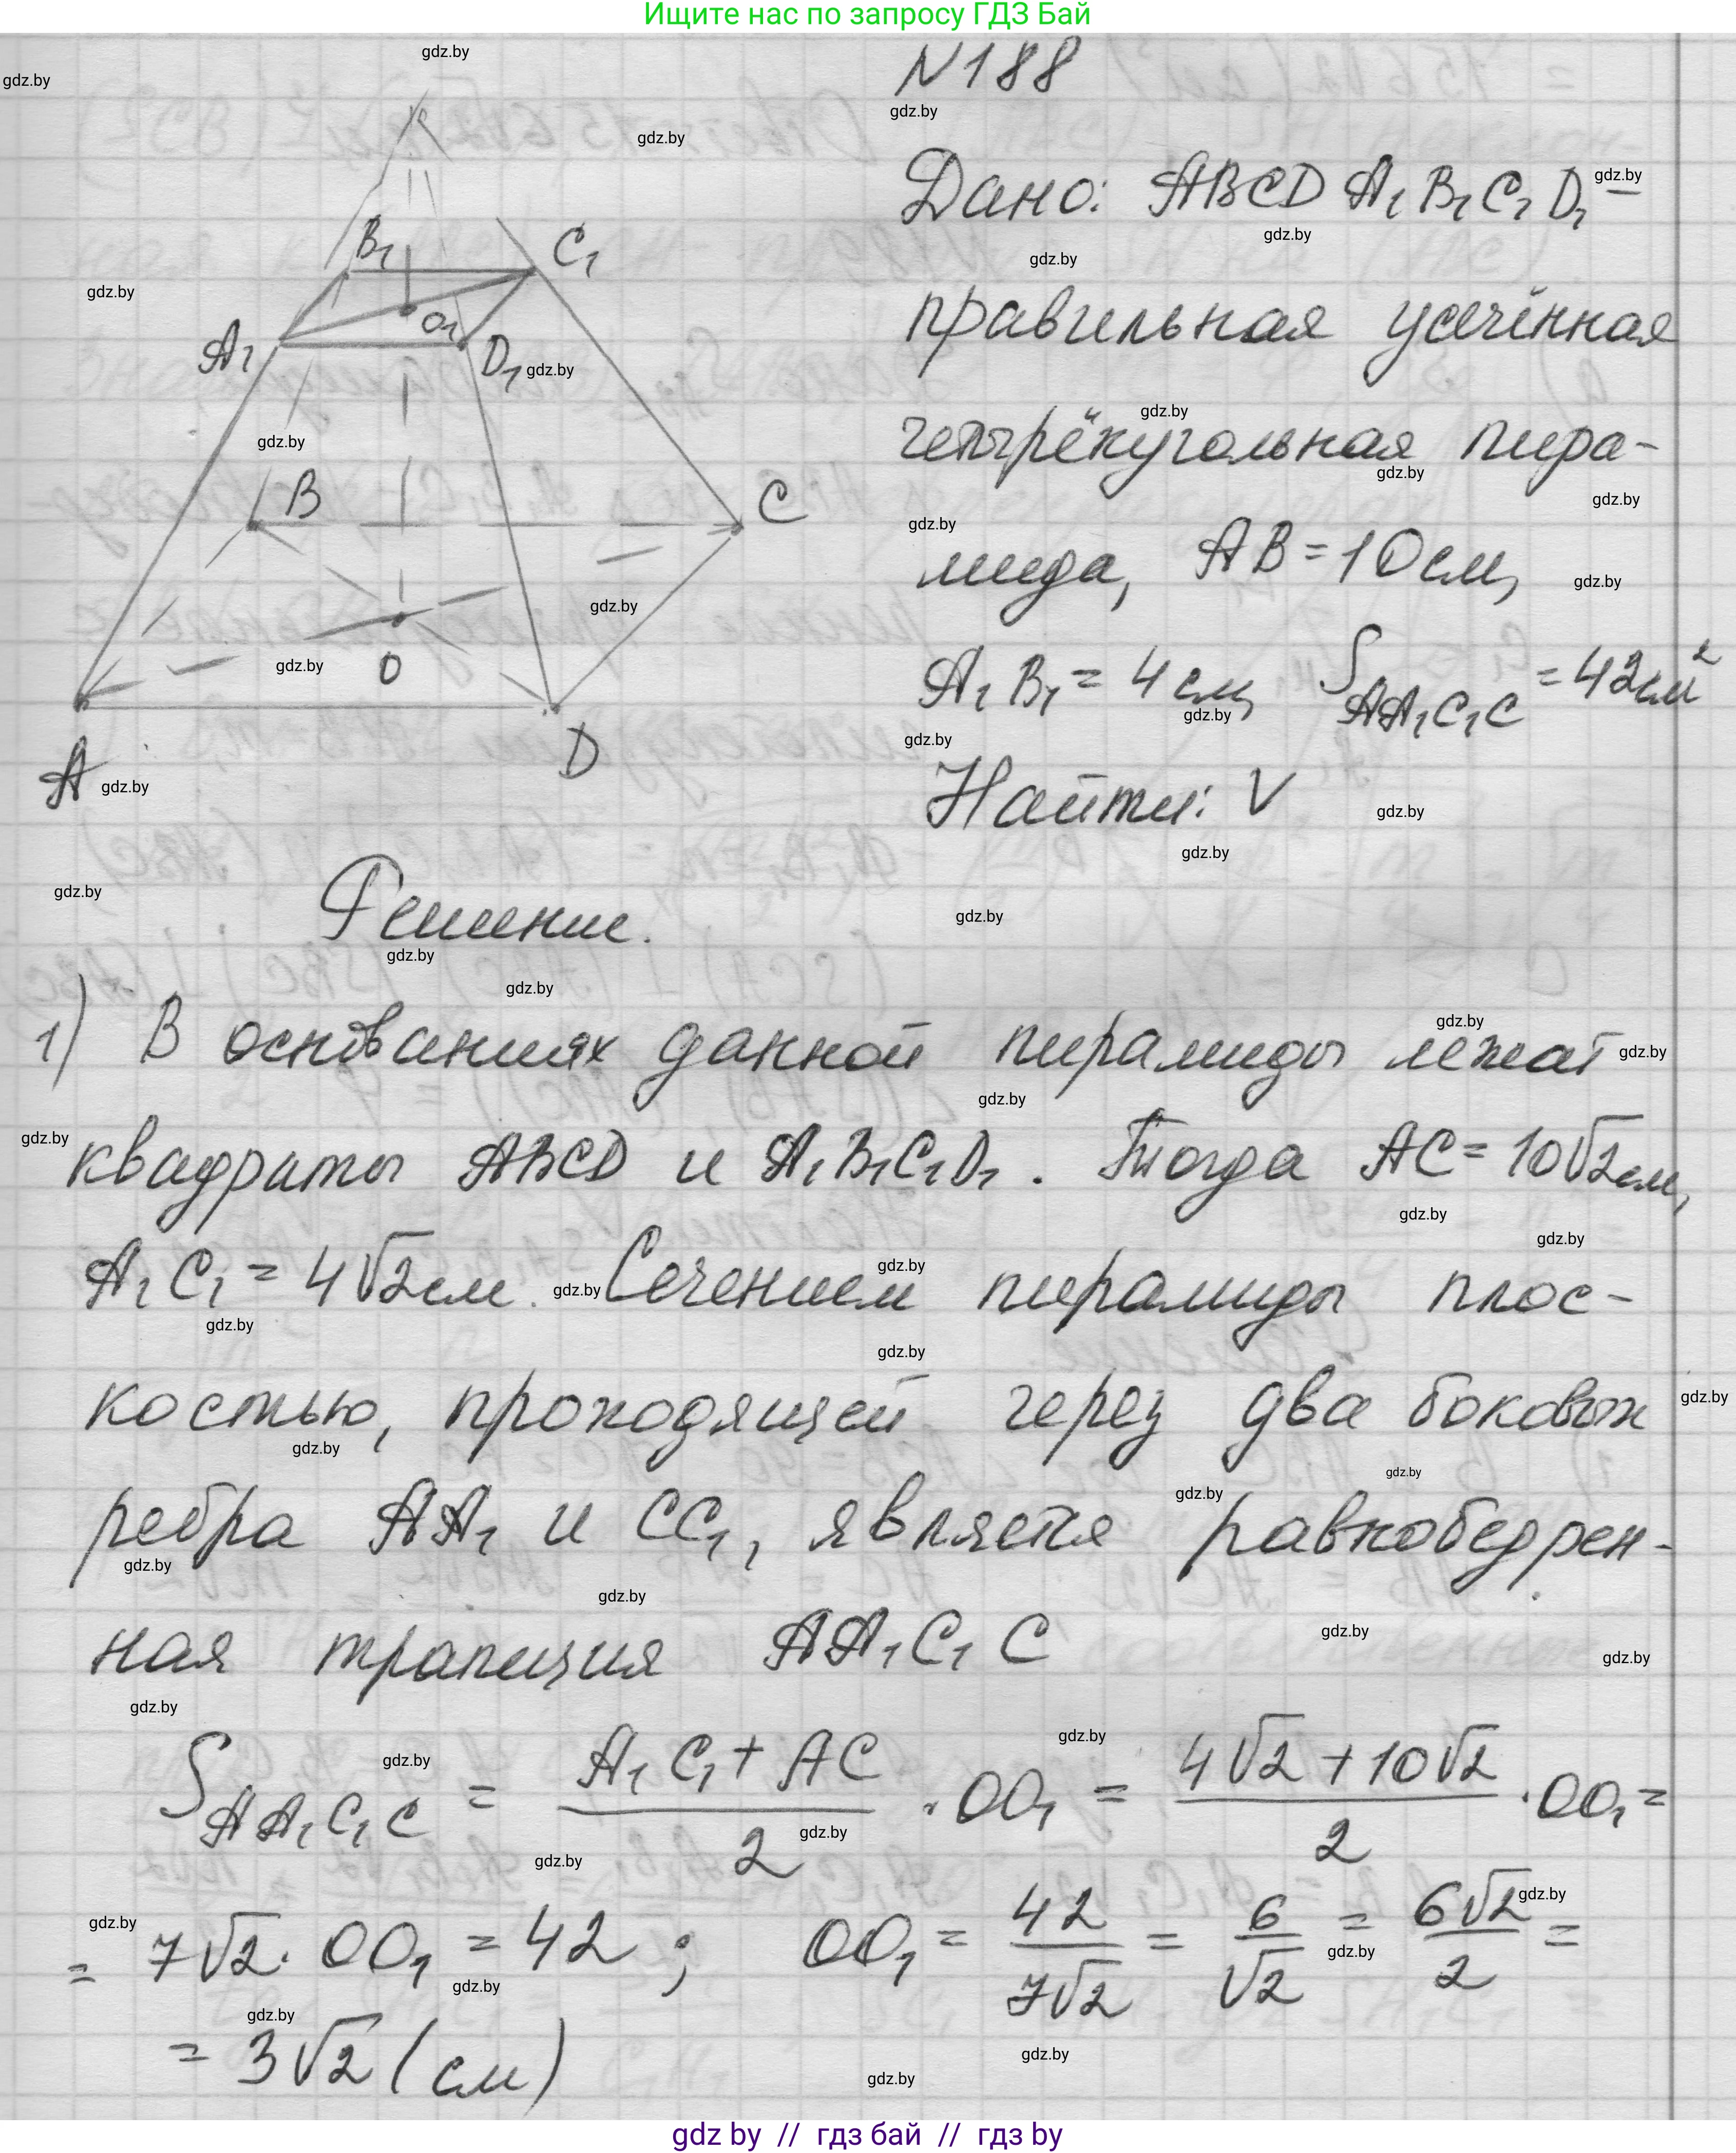 Ищите нас по запросу ГДЗ Бай
N188
Дано: ABCDA₁B₁C₁D₁ –
правильная усечённая
четырёхугольная пира-
мида, AB = 10 см,
A₁B₁ = 4 см, S_{AA₁C₁C} = 42 см²
Найти: V
B₁
C₁
A₁
O₁
D₁
B
C
O
A
D
Решение.
1) В основаниях данной пирамиды лежат
квадраты ABCD и A₁B₁C₁D₁. Тогда AC = 10√2 см,
A₁C₁ = 4√2 см. Сечением пирамиды плос-
костью, проходящей через два боковых
ребра AA₁ и CC₁, является равнобедрен-
ная трапеция AA₁C₁C
S_{AA₁C₁C} = (A₁C₁ + AC)/2 · OO₁ = (4√2 + 10√2)/2 · OO₁ =
= 7√2 · OO₁ = 42 ; OO₁ = 42/(7√2) = 6/√2 = 6√2/2 =
= 3√2 (см)
gdz by // гдз бай // гдз by